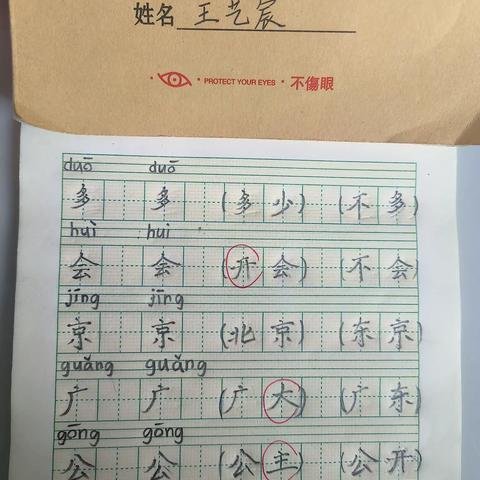 姓名 王艺宸
· PROTECT YOUR EYES · 不傷眼
duō duō
多 多 (多少) (不多)
huì huì
会 会 (开会) (不会)
jīng jīng
京 京 (北京) (东京)
guǎng guǎng
广 广 (广大) (广东)
gōng gōng
公 公 (公主) (公开)